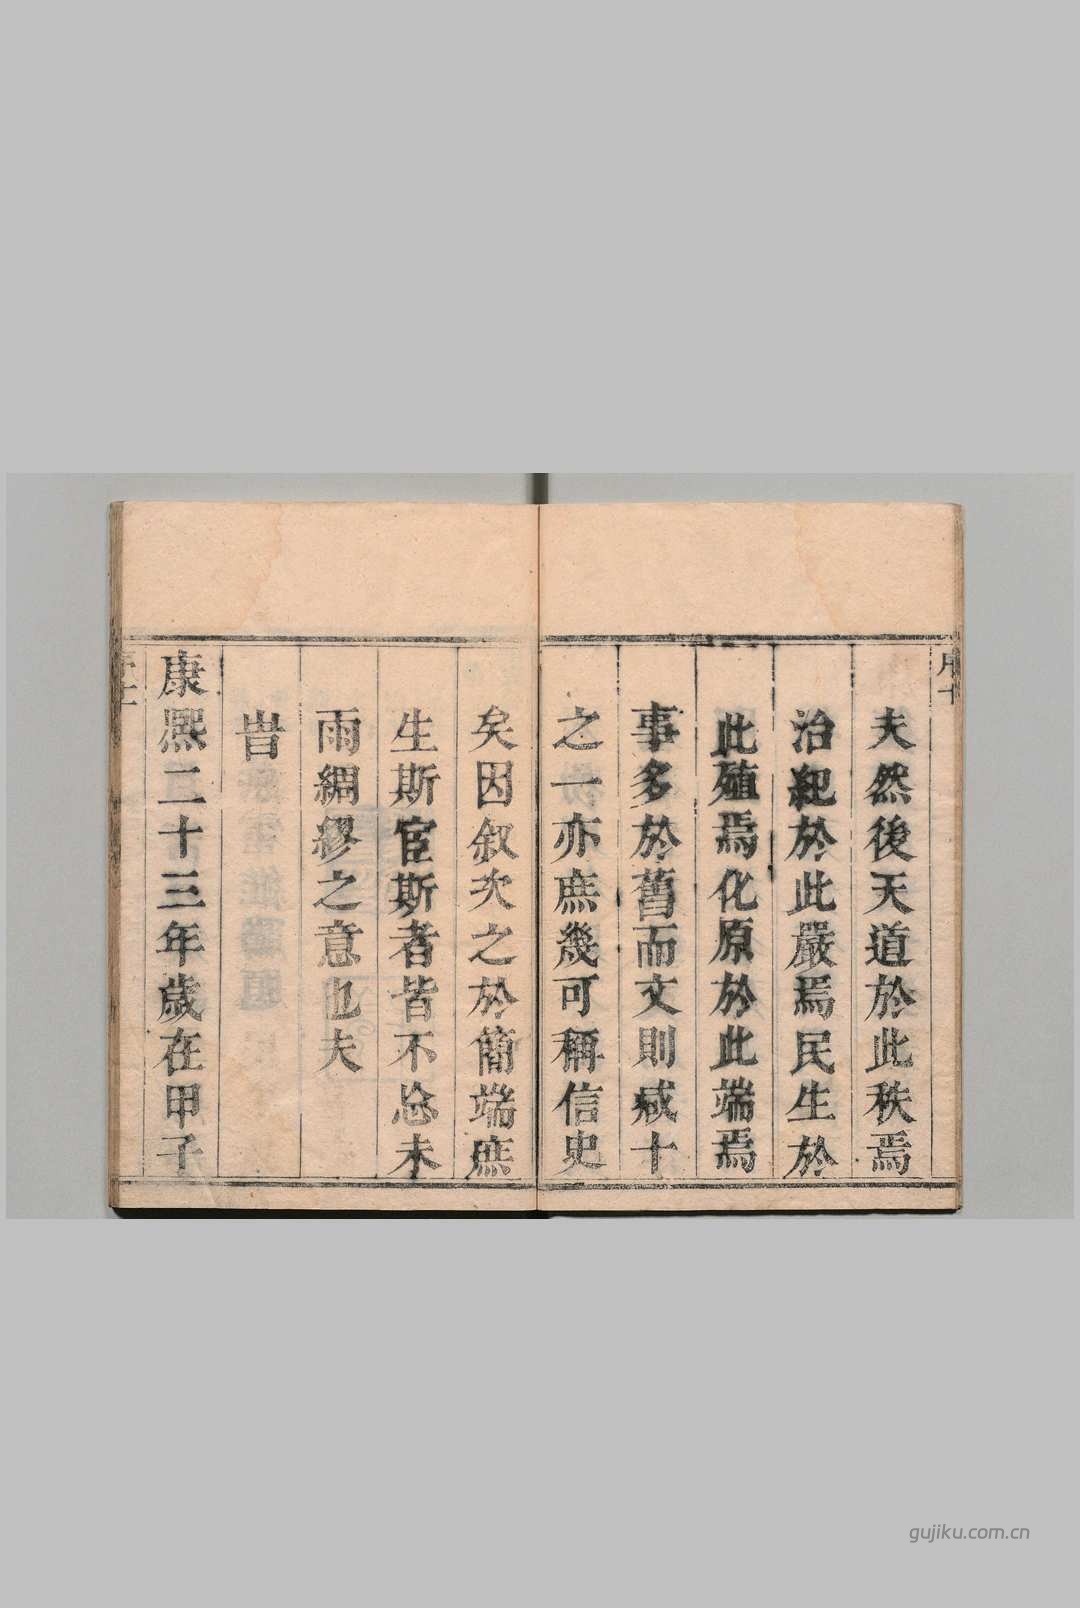 夫然後天道於此秩焉
治紀於此嚴焉民生於
此殖焉化原於此端焉
事多於舊而文則減十
之一亦庶幾可稱信史
矣因叙次之於簡端庶
生斯宦斯者皆不忘未
雨綢繆之意也夫
旹
康熙二十三年歲在甲子
gujiku.com.cn